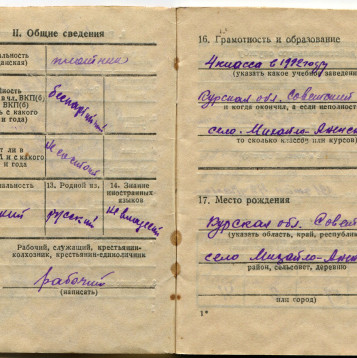 II. Общие сведения
альность
данская)
плотник
йность
в чл. ВКП(б)
ВКП(б)
ь с какого
и года)
беспартийный
ит ли в
А и с какого
и года)
Не состоял
альность
13. Родной яз.
14. Знание
иностранных
языков
ский
русский
не владеет
Рабочий, служащий, крестьянин-
колхозник, крестьянин-единоличник
рабочий
(написать)
16. Грамотность и образование
4 класса в
году
(указать какое учебное заведение
Курская обл. Советский
и когда окончил, а если неполност
село. Михайло-Аненс
то сколько классов или курсов)
17. Место рождения
Курская обл. Совет
(указать область, край, республику
село Михайло-Анен
район, сельсовет, деревню
или город)
1*